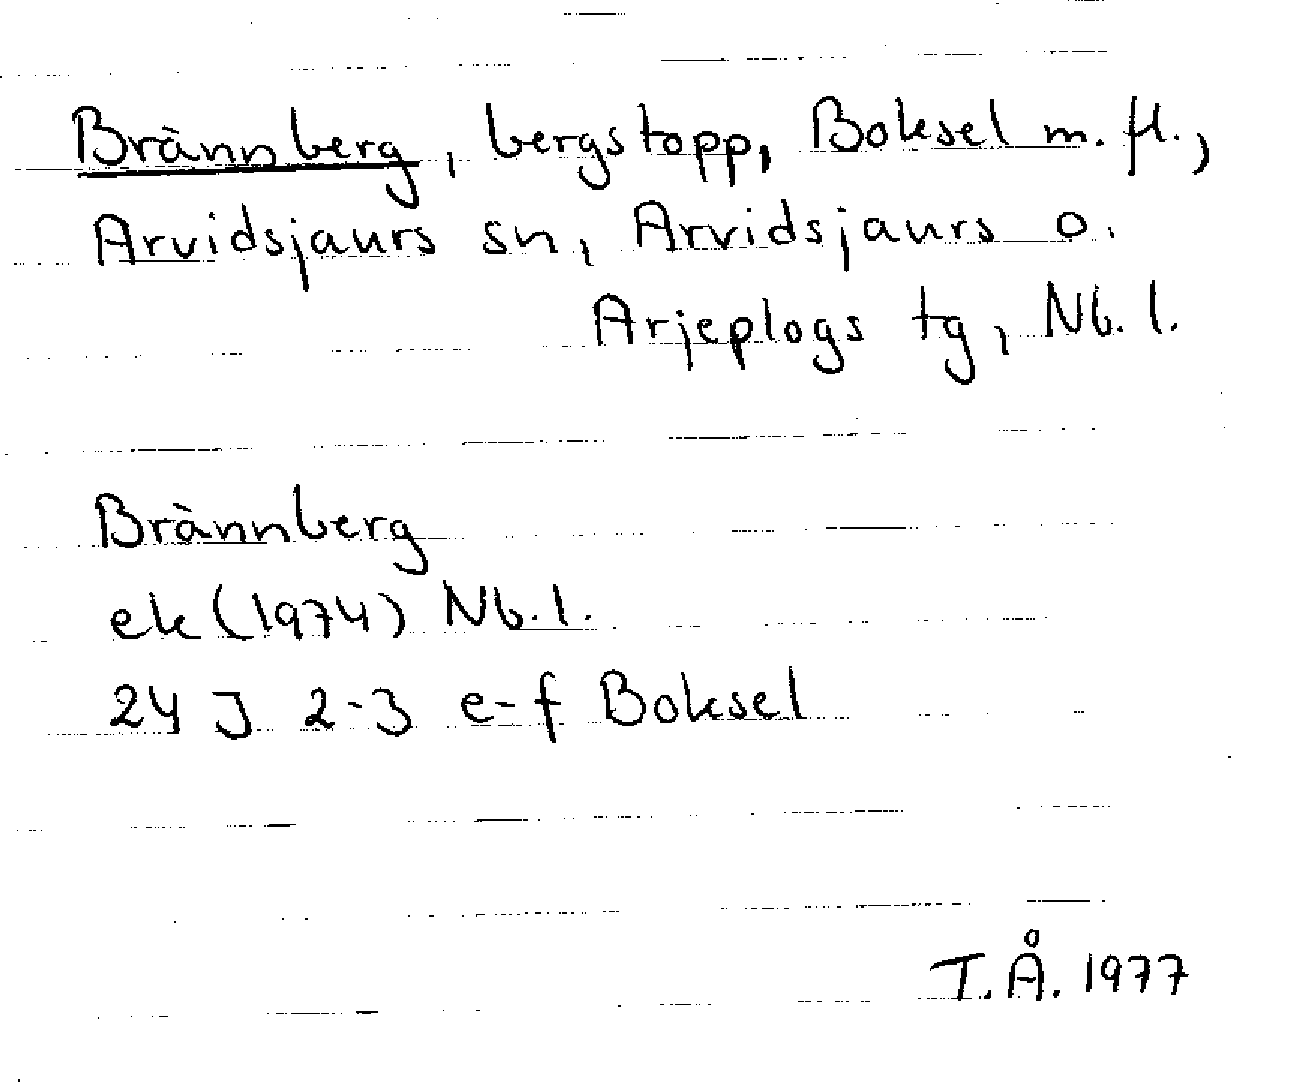 Brännberg, bergstopp, Boksel m. fl.,
Arvidsjaurs sn, Arvidsjaurs o.
Arjeplogs tg, Nb. l.
Brännberg
ek (1974) Nb. l.
24 J 2-3 e-f Boksel
T. Å. 1977